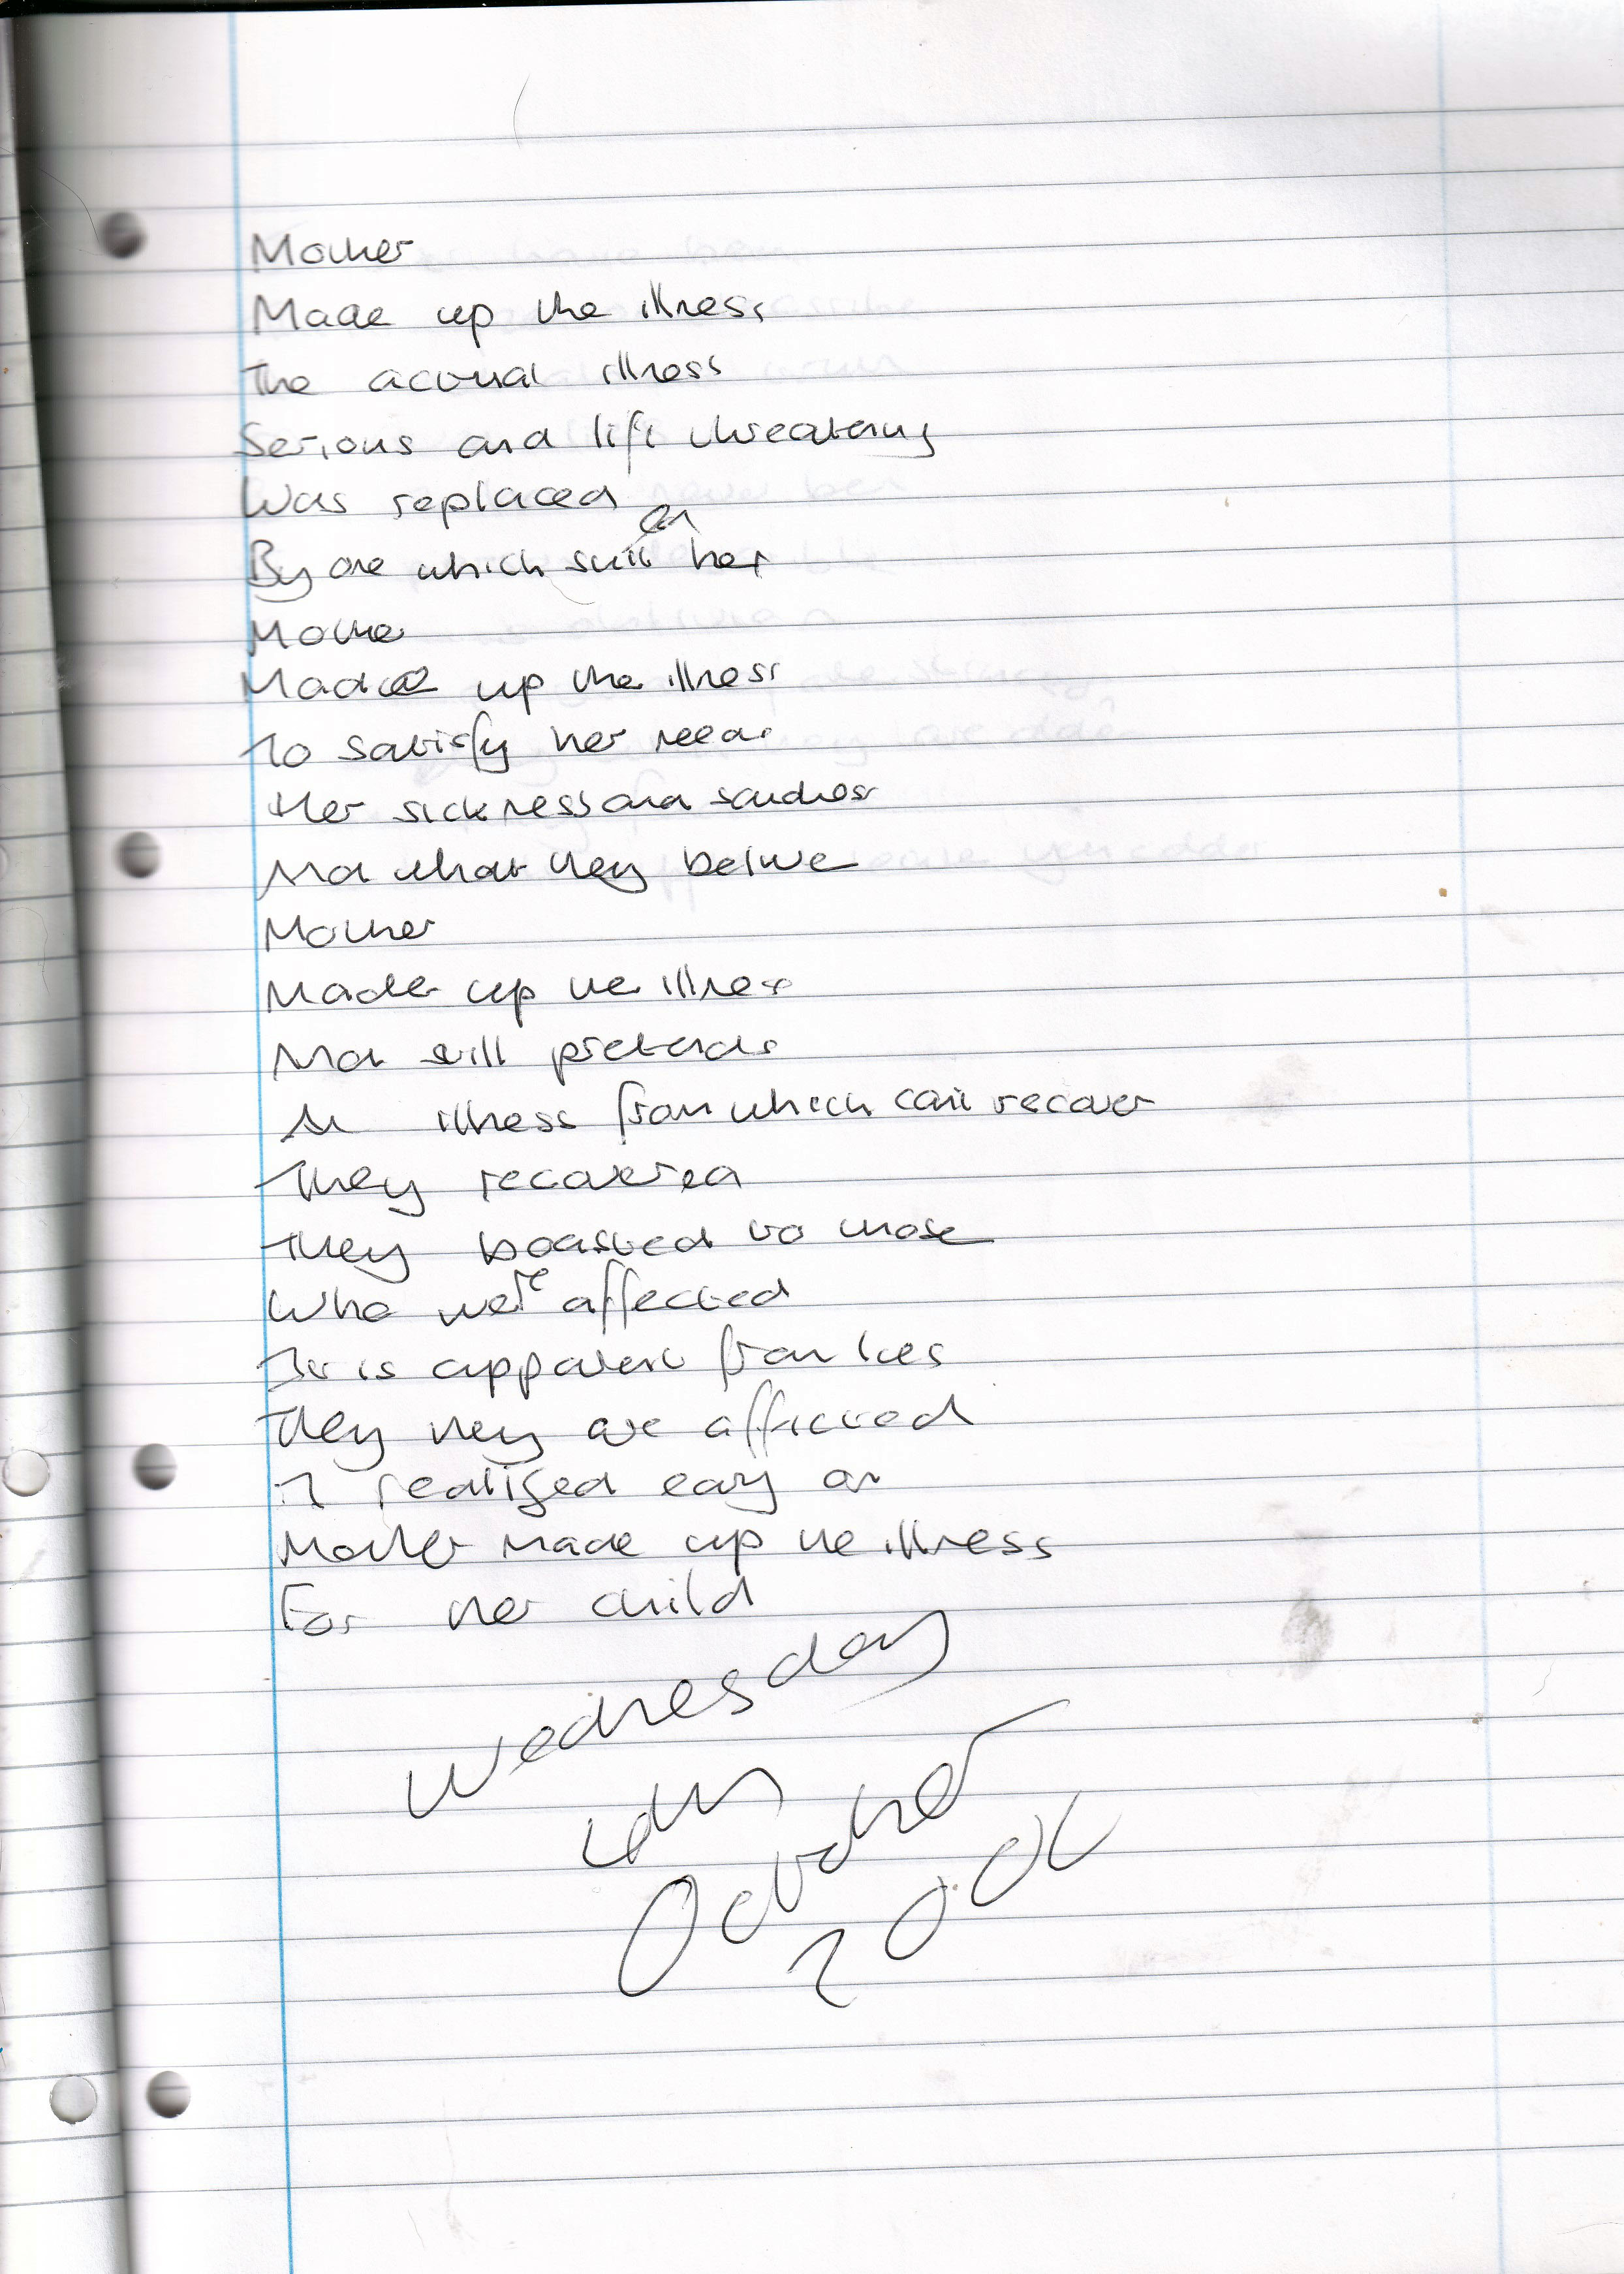 Mother
Made up the illness
The actual illness
Serious and life threatening
Was replaced
By one which suited her
Mother
Made up the illness
To satisfy her need
Her sickness and sadness
Not what they believe
Mother
Made up the illness
Not still pretends
An illness from which can recover
They recovered
They boasted to those
Who were affected
It is apparent from lies
They they are affected
I realised early on
Mother made up the illness
For her child
Wednesday
October